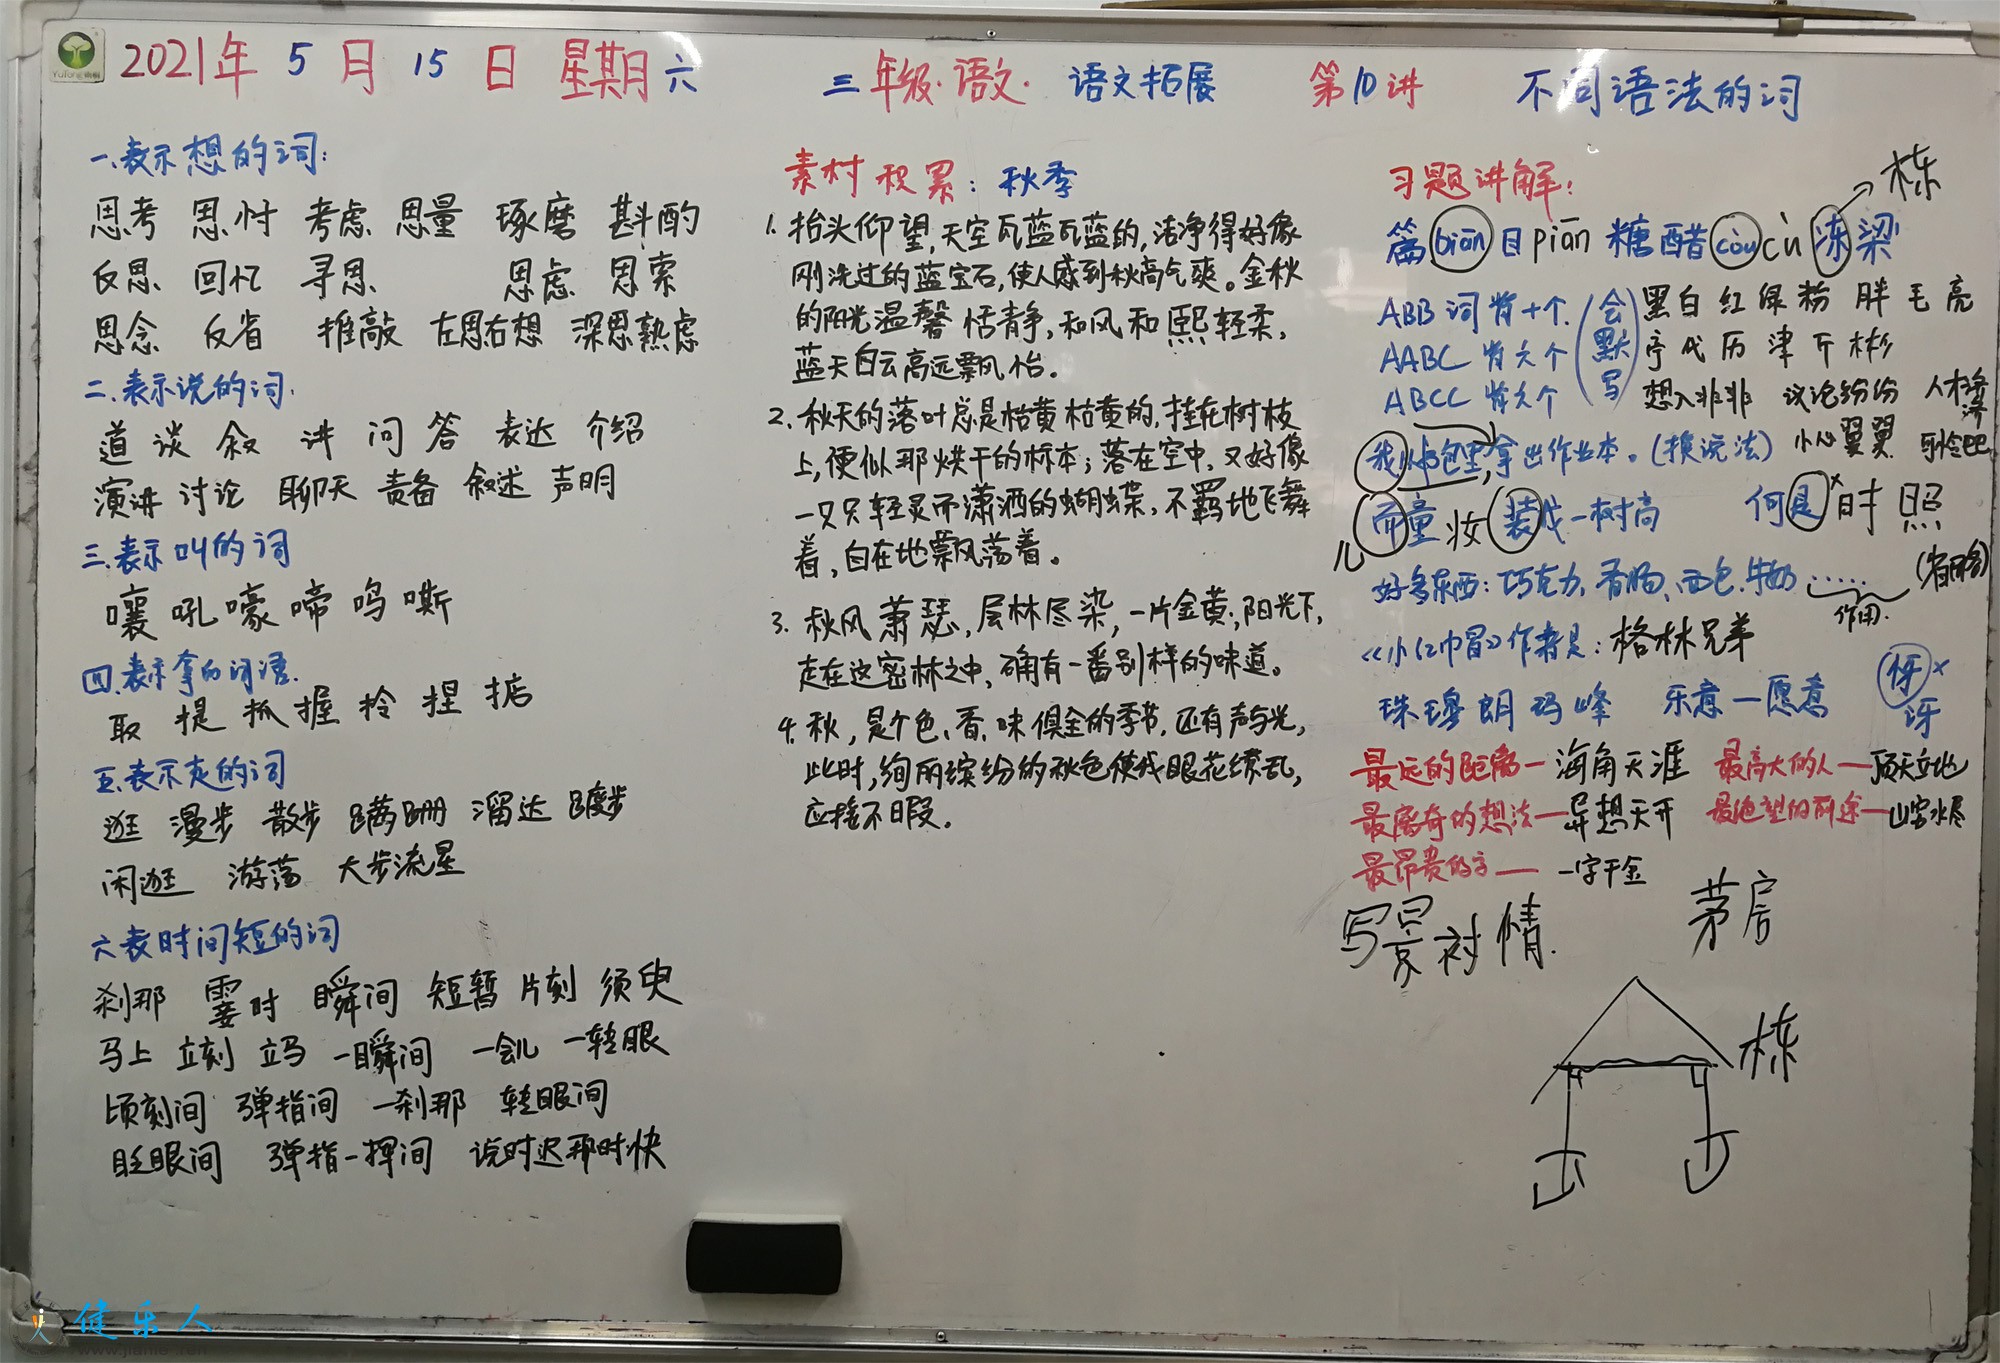 2021年 5 月 15 日 星期六 三年级·语文· 语文拓展 第10讲 不同语法的词
一.表示想的词:
思考 思忖 考虑 思量 琢磨 斟酌
反思 回忆 寻思 思虑 思索
思念 反省 推敲 左思右想 深思熟虑
二.表示说的词.
道 谈 叙 讲 问 答 表达 介绍
演讲 讨论 聊天 责备 叙述 声明
三.表示叫的词
嚷 吼 嚎 啼 鸣 嘶
四.表示拿的词语.
取 提 抓 握 拎 捏 掂
五.表示走的词
逛 漫步 散步 蹒跚 溜达 踱步
闲逛 游荡 大步流星
六表时间短的词
刹那 霎时 瞬间 短暂 片刻 须臾
马上 立刻 立马 一瞬间 一会儿 一转眼
顷刻间 弹指间 一刹那 转眼间
眨眼间 弹指一挥间 说时迟那时快
素材积累: 秋季
1. 抬头仰望,天空瓦蓝瓦蓝的,洁净得好像
刚洗过的蓝宝石,使人感到秋高气爽。金秋
的阳光温馨恬静,和风和熙轻柔,
蓝天白云高远飘怡.
2. 秋天的落叶总是枯黄枯黄的,挂在树枝
上,便似那烘干的标本;落在空中,又好像
一只只轻灵而潇洒的蝴蝶,不羁地飞舞
着,自在地飘荡着。
3. 秋风萧瑟,层林尽染,一片金黄;阳光下,
走在这密林之中,确有一番别样的味道。
4. 秋,是个色、香、味俱全的季节,还有声与光,
此时,绚丽缤纷的秋色使我眼花缭乱,
应接不暇。
习题讲解:
栋
篇 biān 目 piān 糖醋 còu cù 冻梁
ABB 词背十个.
AABC 背六个
ABCC 背六个
(会默写)
黑白红绿粉 胖毛亮
序代历津斤彬
想入非非 议论纷纷 人才济济
小心翼翼 可怜巴巴
我从书包里拿出作业本。(换说法)
而童妆装成一树高 何是×时 照
儿
好多东西: 巧克力、香肠、面包、牛奶 …… (省略)
作用.
《小红帽》作者是: 格林兄弟
珠穆朗玛峰 乐意—愿意 伢×
讶
最远的距离—海角天涯 最高大的人—顶天立地
最离奇的想法—异想天开 最绝望的前途—山穷水尽
最昂贵的字— 一字千金
写景衬情. 茅房
栋
健乐人